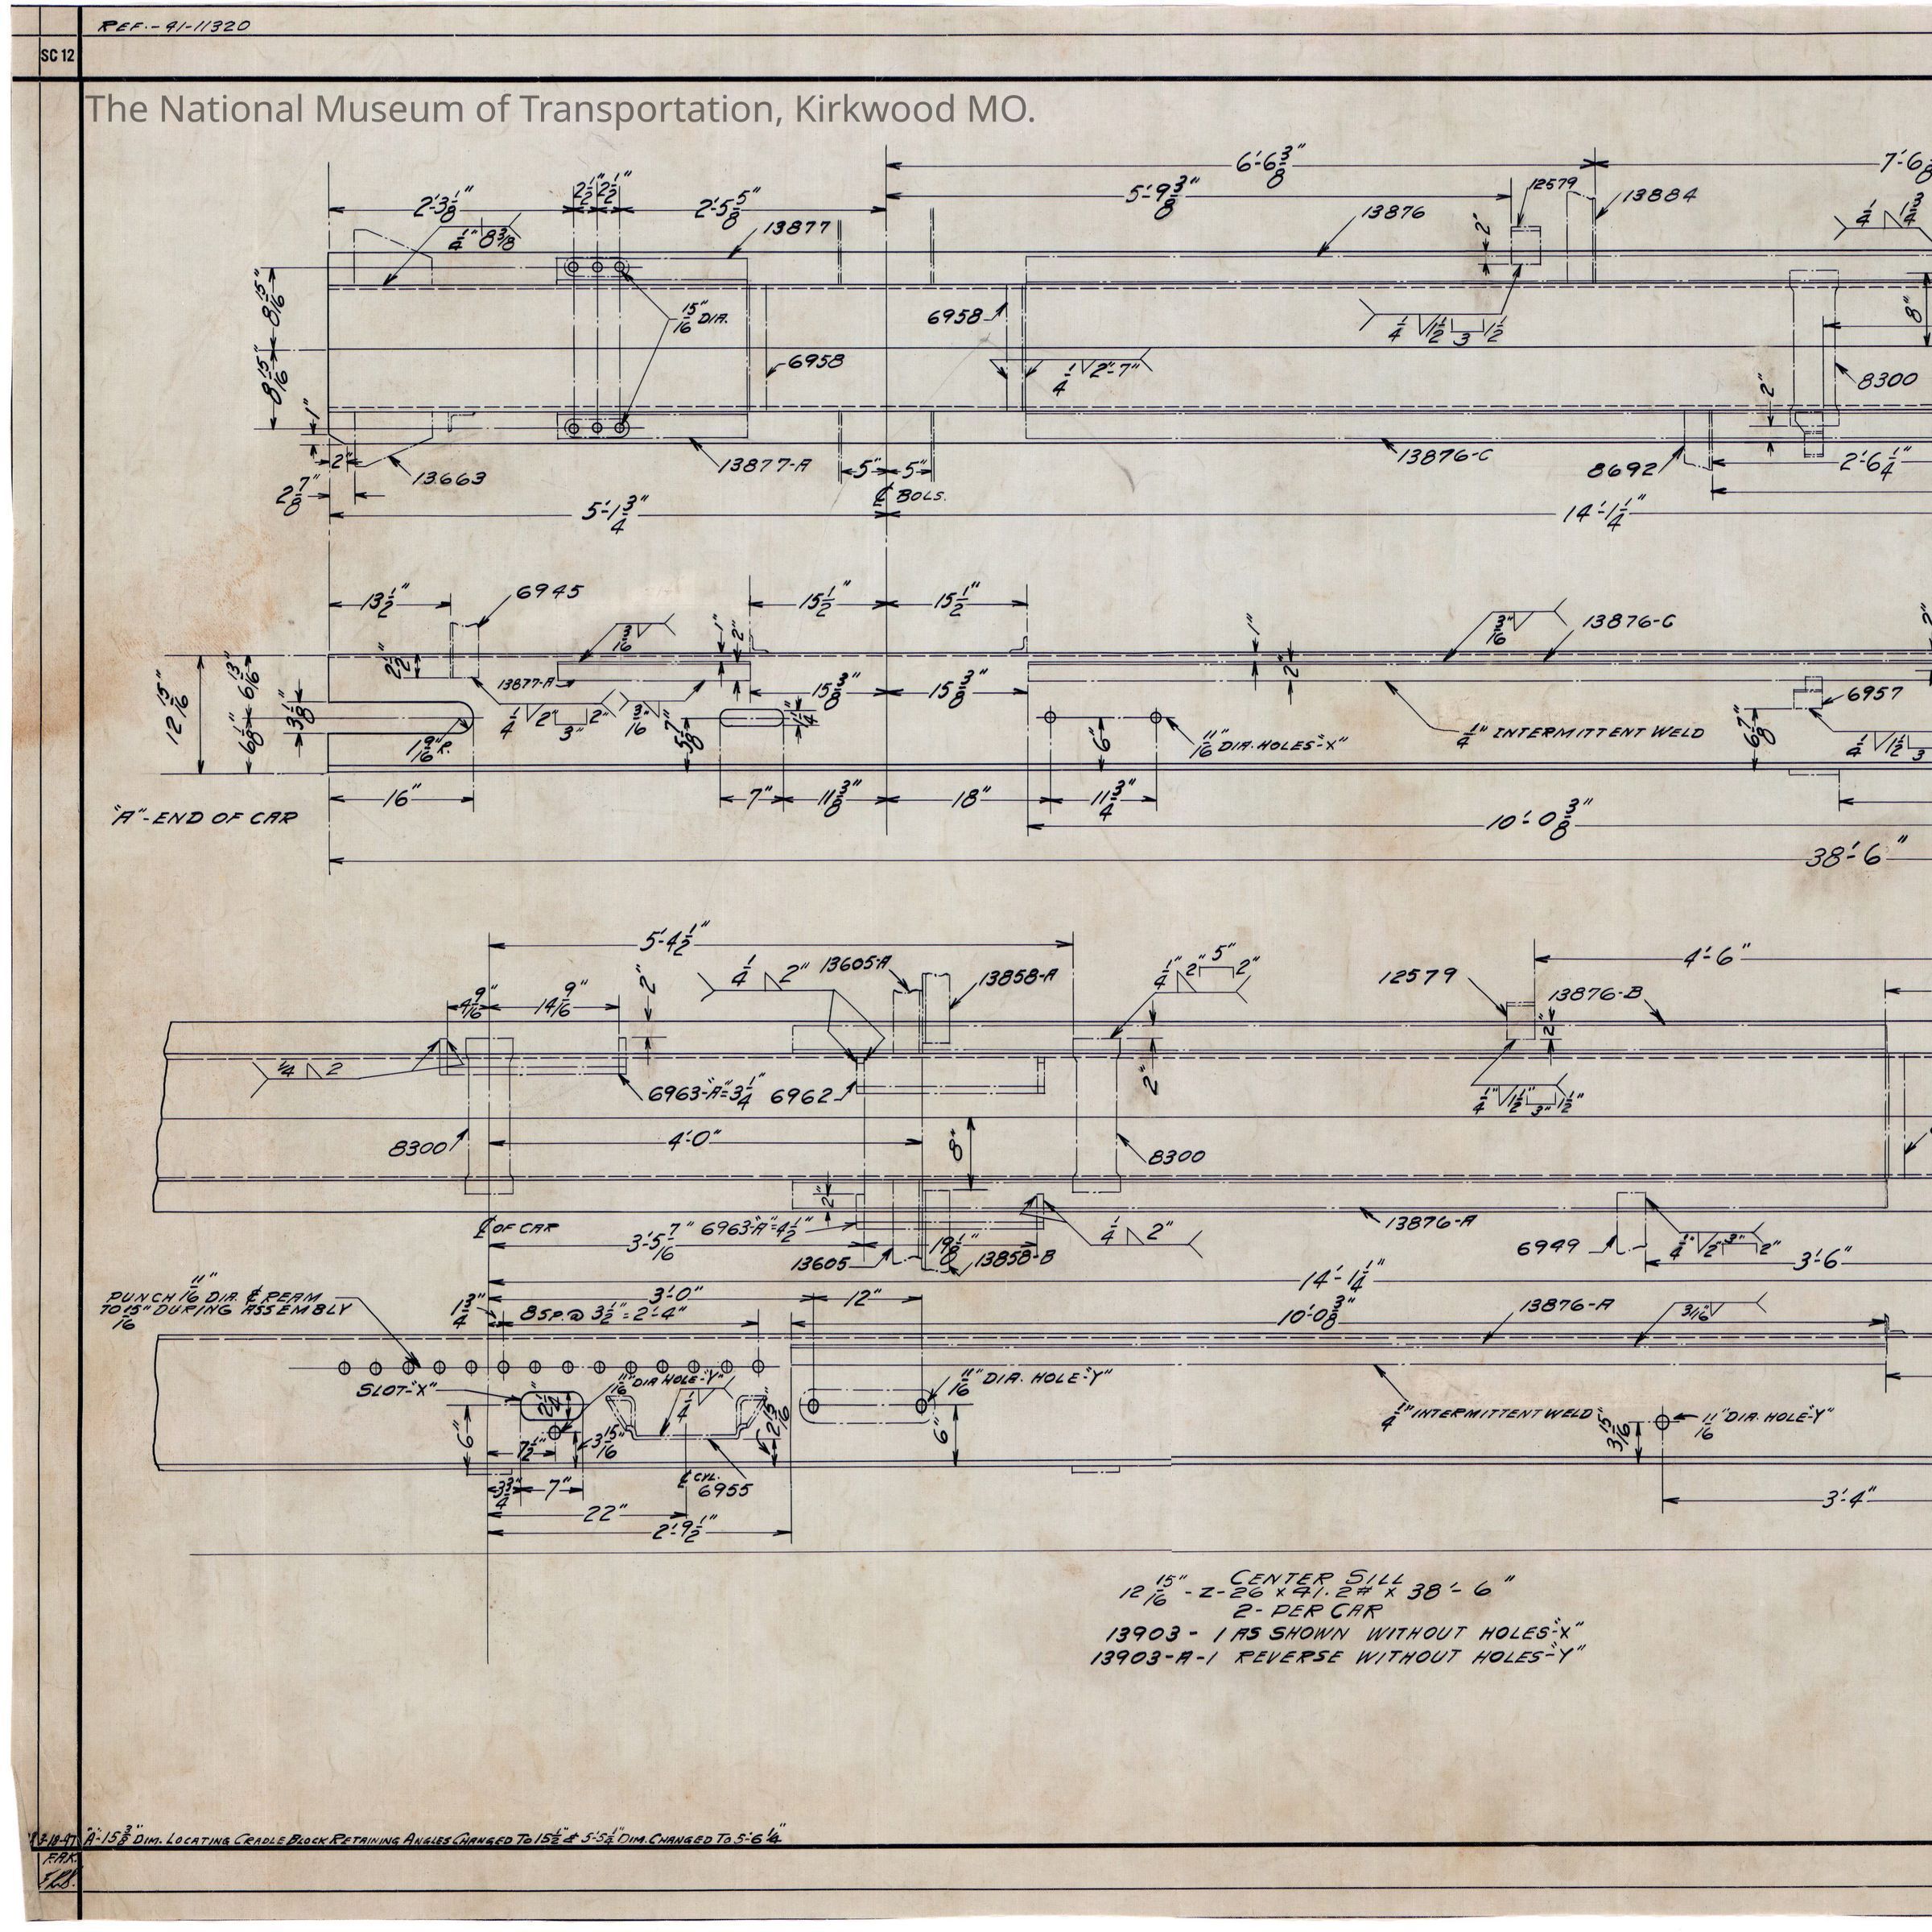 REF.- 91-11320
SC 12
The National Museum of Transportation, Kirkwood MO.
6'-6 3/8"
2'-3 1/8"
2 1/2"
2 1/2"
2'-5 5/8"
5'-9 3/8"
12579
13884
13877
13876
2"
1/4" 8 3/8
8 15/16"
8 15/16"
15/16" DIA.
6958
6958
1/4 1 1/2 3 1 1/2
8"
1/4 2'-7"
8300
2"
1"
2"
13663
13877-A
5"
5"
13876-C
8692
2'-6 1/4"
2 7/8"
℄ BOLS.
5'-1 3/4"
14'-1 1/4"
13 1/2"
6945
15 1/2"
15 1/2"
3/16
1"
2"
1"
2"
3/16"
13876-C
2 1/2"
13877-A
15 3/8"
15 3/8"
6957
12 15/16"
6 13/16"
6 1/8"
3 1/8"
1 9/16" R.
1/4 2" 3" 2"
3/16
5 7/8"
1 1/4"
6"
11/16" DIA. HOLES-"X"
1/4" INTERMITTENT WELD
6 7/8"
1/4 1 1/2 3
16"
7"
11 3/8"
18"
11 3/4"
"A"-END OF CAR
10'-0 3/8"
38'-6"
5'-4 1/2"
1/4 2"
13605-A
13858-A
1/4" 2" 5" 2"
12579
13876-B
4'-6"
4 9/16"
14 9/16"
2"
2"
2"
1/4 2
6963-"A"=3 1/4
6962
1/4" 1 1/2" 3" 1 1/2"
8300
4'-0"
8"
8300
2"
℄ OF CAR
3'-5 7/16"
6963-"A"=4 1/2"
19 1/8"
1/4 2"
13876-A
6949
1/4" 2" 3" 2"
3'-6"
13605
13858-B
14'-1 1/4"
PUNCH 11/16" DIA. & REAM
TO 15/16" DURING ASSEMBLY
3'-0"
12"
1 3/4"
8 SP. @ 3 1/2" = 2'-4"
10'-0 3/8"
13876-A
3/16"
SLOT-"X"
11/16" DIA. HOLE-"Y"
11/16" DIA. HOLE-"Y"
2 1/4"
1/4
6"
7 1/2"
3 15/16"
2 13/16"
6"
1/4" INTERMITTENT WELD
3 15/16"
11/16" DIA. HOLE-"Y"
3 3/4"
7"
℄ CYL.
6955
22"
2'-9 1/2"
3'-4"
CENTER SILL
12 15/16" - Z-26 x 41.2# x 38'-6"
2- PER CAR
13903 - 1 AS SHOWN WITHOUT HOLES-"X"
13903-A-1 REVERSE WITHOUT HOLES-"Y"
3-18-47 "A"-15 3/8" DIM. LOCATING CRADLE BLOCK RETAINING ANGLES CHANGED TO 15 1/2" & 5'-5 1/4" DIM. CHANGED TO 5'-6 1/4"
F.A.K.